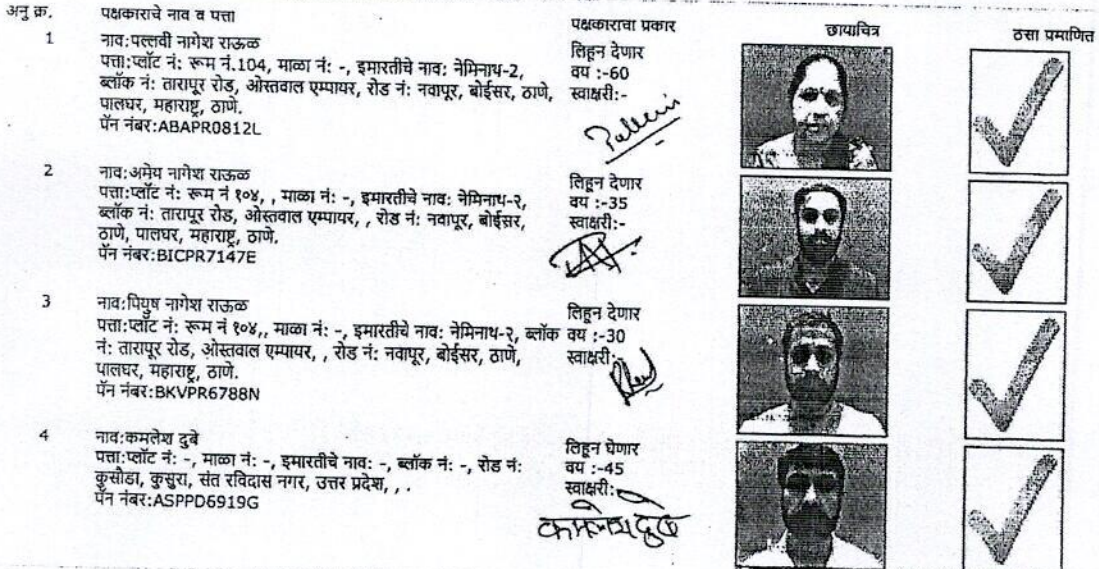 अनु क्र. पक्षकाराचे नाव व पत्ता पक्षकाराचा प्रकार छायाचित्र ठसा प्रमाणित
1 नाव:पल्लवी नागेश राऊळ
पत्ता:प्लॉट नं: रूम नं.104, माळा नं: -, इमारतीचे नाव: नेमिनाथ-2,
ब्लॉक नं: तारापूर रोड, ओस्तवाल एम्पायर, रोड नं: नवापूर, बोईसर, ठाणे,
पालघर, महाराष्ट्र, ठाणे.
पॅन नंबर:ABAPR0812L
लिहून देणार
वय :-60
स्वाक्षरी:-
2 नाव:अमेय नागेश राऊळ
पत्ता:प्लॉट नं: रूम नं १०४, , माळा नं: -, इमारतीचे नाव: नेमिनाथ-२,
ब्लॉक नं: तारापूर रोड, ओस्तवाल एम्पायर, , रोड नं: नवापूर, बोईसर,
ठाणे, पालघर, महाराष्ट्र, ठाणे.
पॅन नंबर:BICPR7147E
लिहून देणार
वय :-35
स्वाक्षरी:-
3 नाव:पियुष नागेश राऊळ
पत्ता:प्लॉट नं: रूम नं १०४,, माळा नं: -, इमारतीचे नाव: नेमिनाथ-२, ब्लॉक
नं: तारापूर रोड, ओस्तवाल एम्पायर, , रोड नं: नवापूर, बोईसर, ठाणे,
पालघर, महाराष्ट्र, ठाणे.
पॅन नंबर:BKVPR6788N
लिहून देणार
वय :-30
स्वाक्षरी:-
4 नाव:कमलेश दुबे
पत्ता:प्लॉट नं: -, माळा नं: -, इमारतीचे नाव: -, ब्लॉक नं: -, रोड नं:
कुसौडा, कुसुरा, संत रविदास नगर, उत्तर प्रदेश, , .
पॅन नंबर:ASPPD6919G
लिहून घेणार
वय :-45
स्वाक्षरी:-
कमलेश दुबे